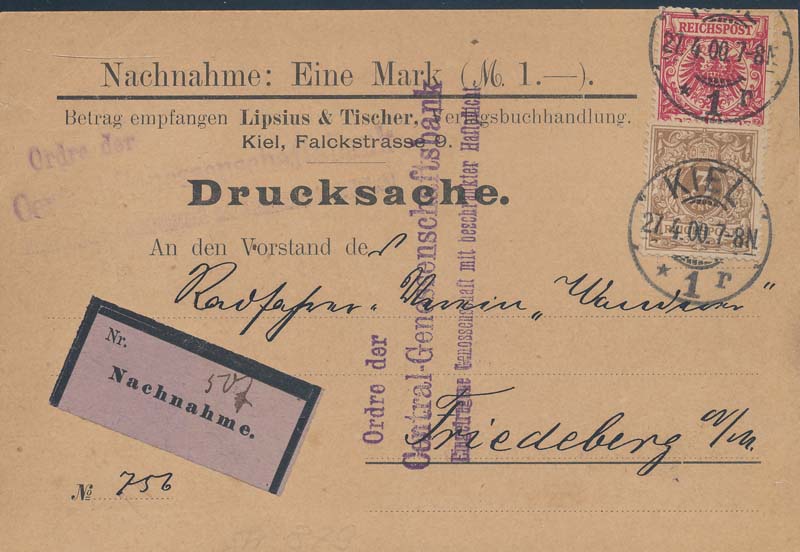 REICHSPOST
KIEL
27.4.00.7-8N
* 1 r
Nachnahme: Eine Mark (M. 1.—).
Betrag empfangen Lipsius & Tischer, Verlagsbuchhandlung.
Kiel, Falckstrasse 9.
Drucksache.
Ordre der
An den Vorstand der
Radfahrer-Verein „Wanderer"
Friedeberg N/M.
KIEL
27.4.00.7-8N
* 1 r
Nr. 507
Nachnahme.
№ 756
Ordre der
Central-Genossenschaftsbank
Eingetragene Genossenschaft mit beschränkter Haftpflicht